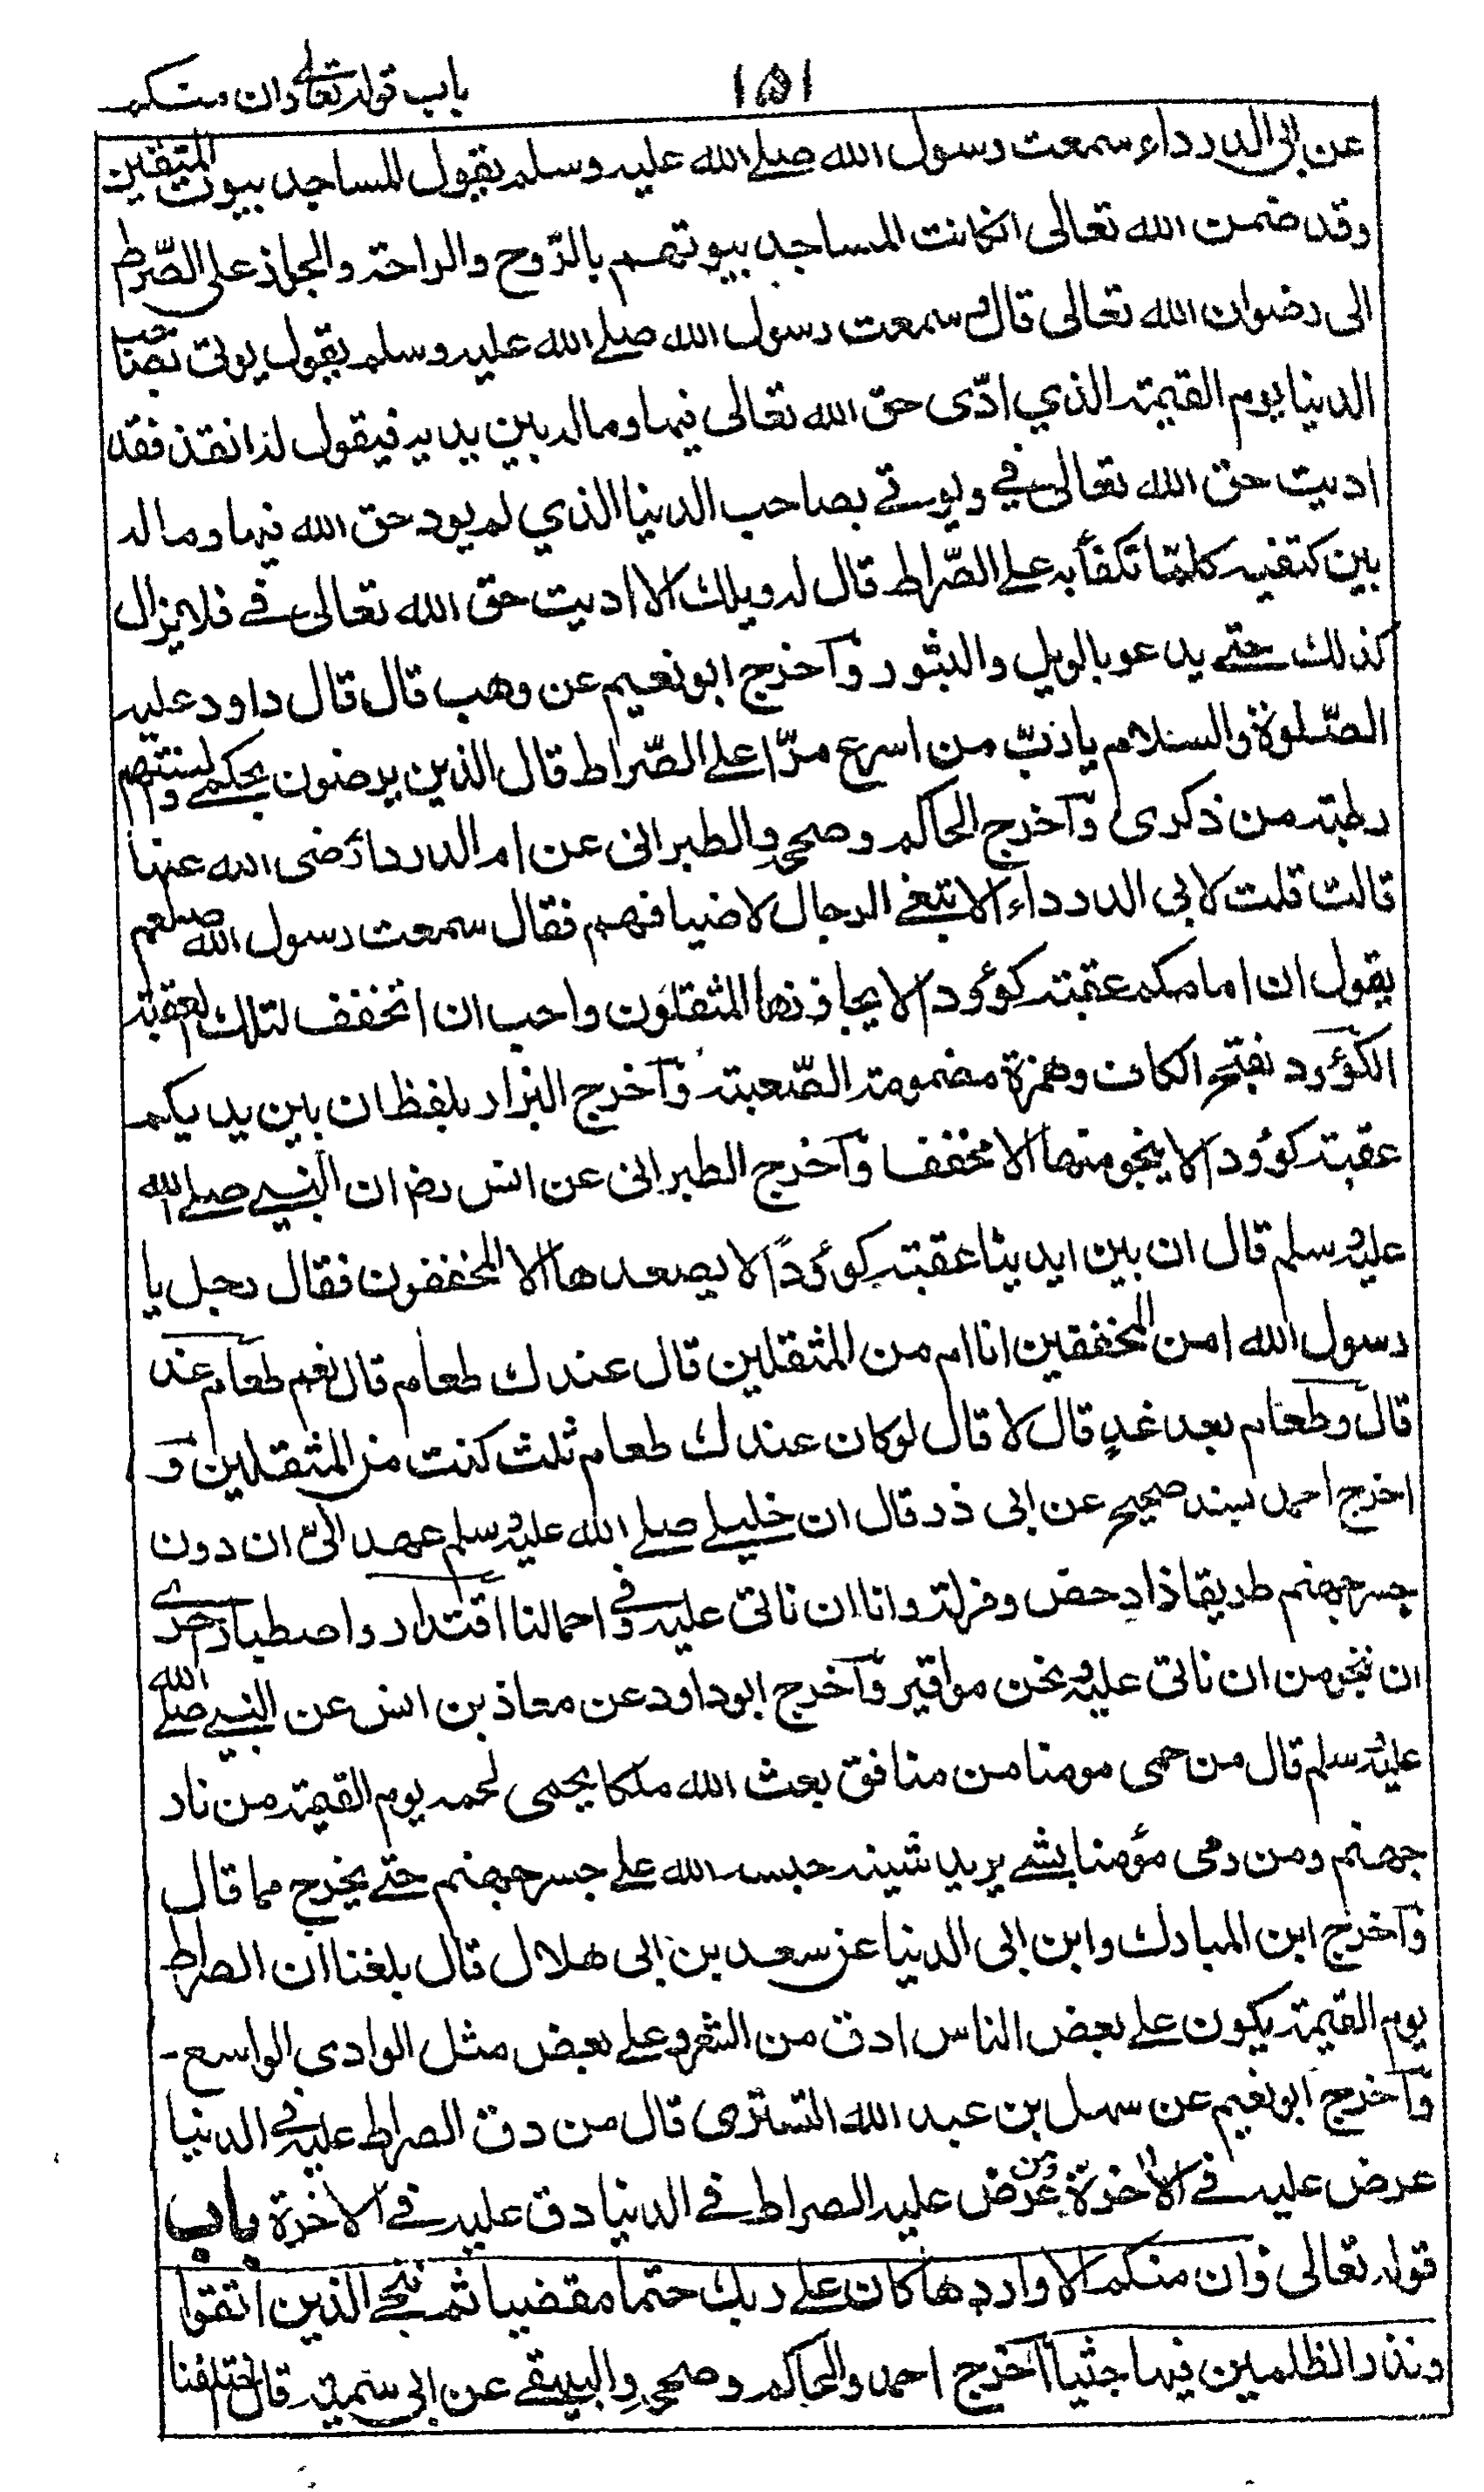 باب قوله تعالى وان منكم
١٥١
عن ابي الدرداء سمعت رسول الله صلے الله عليه وسلم يقول المساجد بيوت المتقين
وقد ضمن الله تعالى لمن كانت المساجد بيوتهم بالرّوح والراحة والجواز على الصّرط
الى رضوان الله تعالى قال وسمعت رسول الله صلے الله عليه وسلم يقول يوتى بصاحب
الدنيا يوم القيمة الذي ادّى حق الله تعالى فيها وماله بين يديه فيقول له انفذ فقد
اديت حق الله تعالى في ويوتے بصاحب الدنيا الذي لم يود حق الله فيها وماله
بين كتفيه كلما تكفأ به علے الصّراط قال له ويلك الا اديت حق الله تعالى فے فلا يزال
كذلك حتے يدعو بالويل والثبور وآخرج ابو نعيم عن وهب قال قال داود عليه
الصّلوة والسلام يا ربّ من اسرع مرّا علے الصّراط قال الذين يرضون بحكمے والسنتهم
رطبة من ذكرى وآخرج الحاكم وصححه والطبرانى عن ام الدرداء رضى الله عنها
قالت قلت لابى الدرداء الا تبتغے الرجال لاضيافهم فقال سمعت رسول الله صلعم
يقول ان امامكم عقبة كوؤدا لا يجاوزها المثقلون واحب ان اتخفف لتلك العقبة
الكؤود بفتح الكاف وهمزة مضمومة الصّعبة وآخرج البزار بلفظ ان بين يديكم
عقبة كوؤدا لا ينجو منها الا مخفف وآخرج الطبرانى عن انس رضه ان النبے صلے الله
عليه وسلم قال ان بين ايدينا عقبة كوؤدًا لا يصعدها الا المخففون فقال رجل يا
رسول الله امن المخففين انا ام من المثقلين قال عندك طعام قال نعم طعام غد
قال وطعام بعد غدٍ قال لا قال لوكان عندك طعام ثلث كنت من المثقلين و
اخرج احمد بسند صحيح عن ابى ذر قال ان خليلے صلے الله عليه وسلم عهد الىّ ان دون
جسر جهنم طريقا ذا دحض ومزلة وانا ان ناتى عليه وفى احمالنا اقتدار واصطبار احرے
ان ننجو من ان ناتى عليه ونحن مواقير وآخرج ابو داود عن معاذ بن انس عن النبے صلے الله
عليه وسلم قال من حمى مومنا من منافق بعث الله ملكا يحمى لحمه يوم القيمة من نار
جهنم ومن رمى مؤمنا بشے يريد شينه حبسه الله علے جسر جهنم حتے يخرج مما قال
وآخرج ابن المبارك وابن ابى الدنيا عن سعد بن ابى هلال قال بلغنا ان الصراط
يوم القيمة يكون علے بعض الناس ادق من الشعر وعلے بعض مثل الوادى الواسع -
وآخرج ابو نعيم عن سهل بن عبد الله التسترى قال من دق الصراط عليه فى الدنيا
عرض عليه فے الاخرة ومن عرض عليه الصراط فے الدنيا دق عليه فے الاخرة باب
قوله تعالى وان منكم الا واردها كان علے ربك حتما مقضيا ثم ننجے الذين اتقوا
ونذر الظلمين فيها جثيا آخرج احمد والحاكم وصححه والبيهقے عن ابى سمية قال اختلفنا